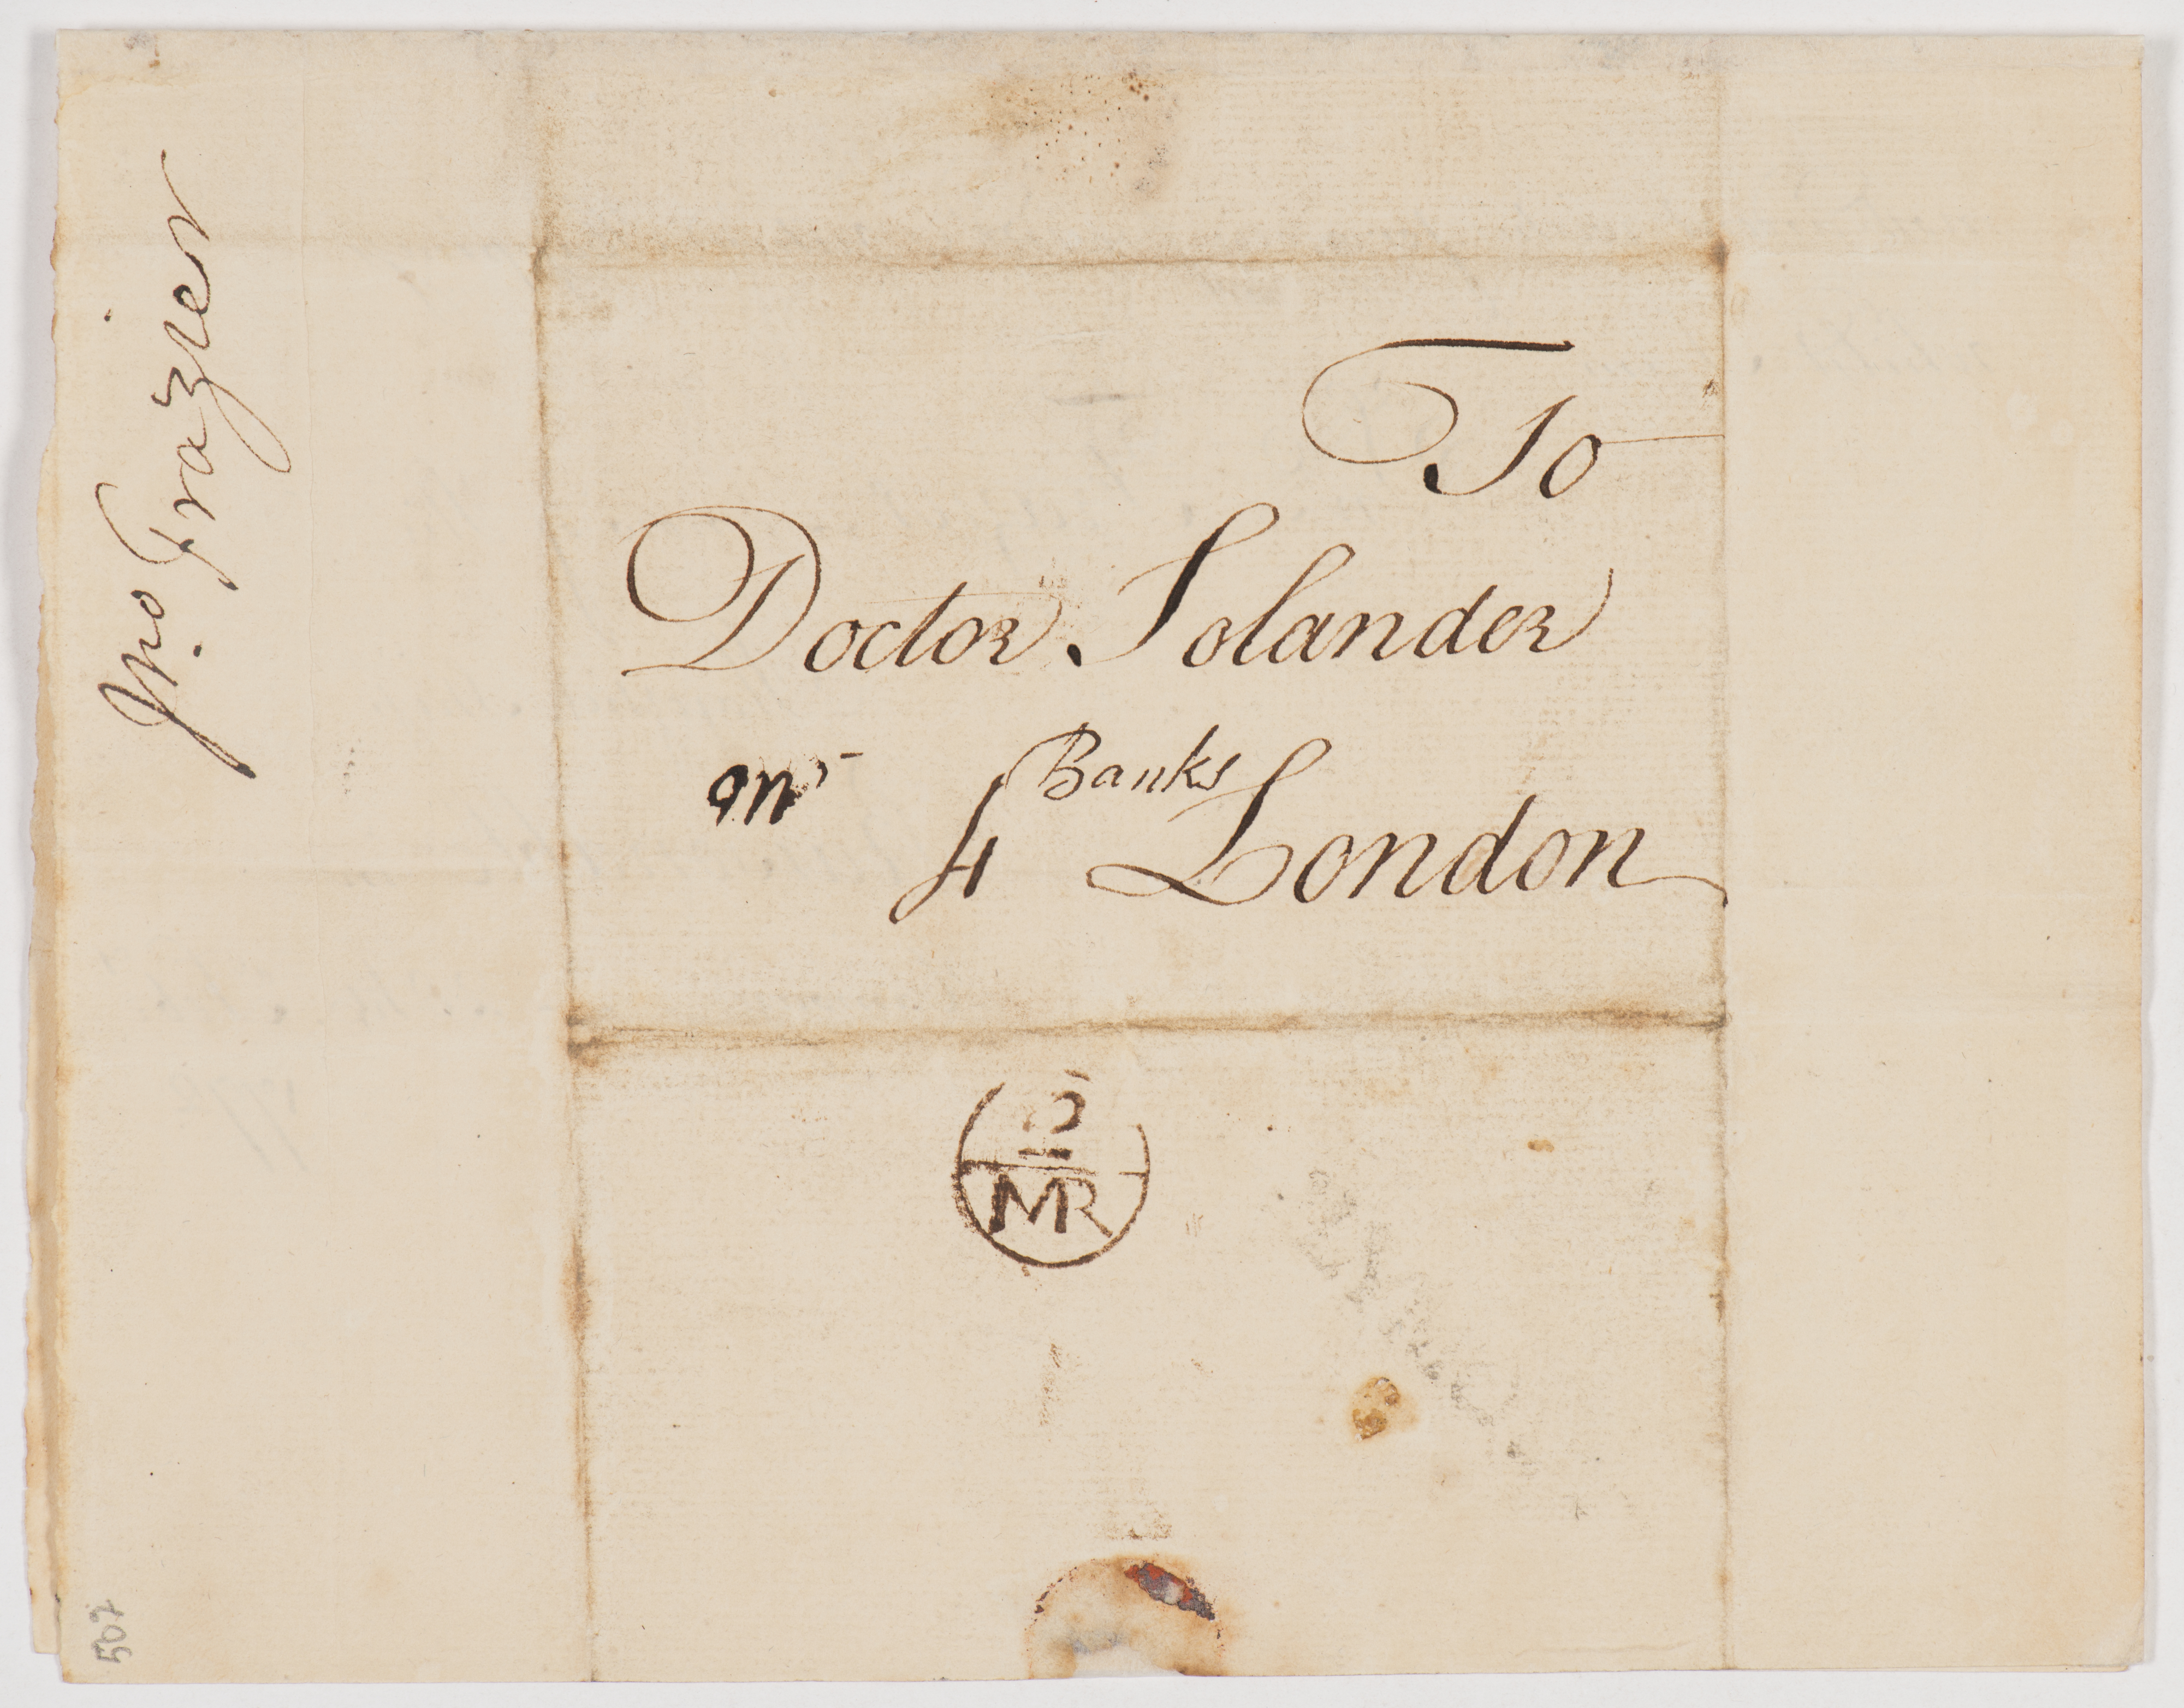 Jno Frazier
To
Doctor Solander
Mr Banks
4 London
5
MR
507